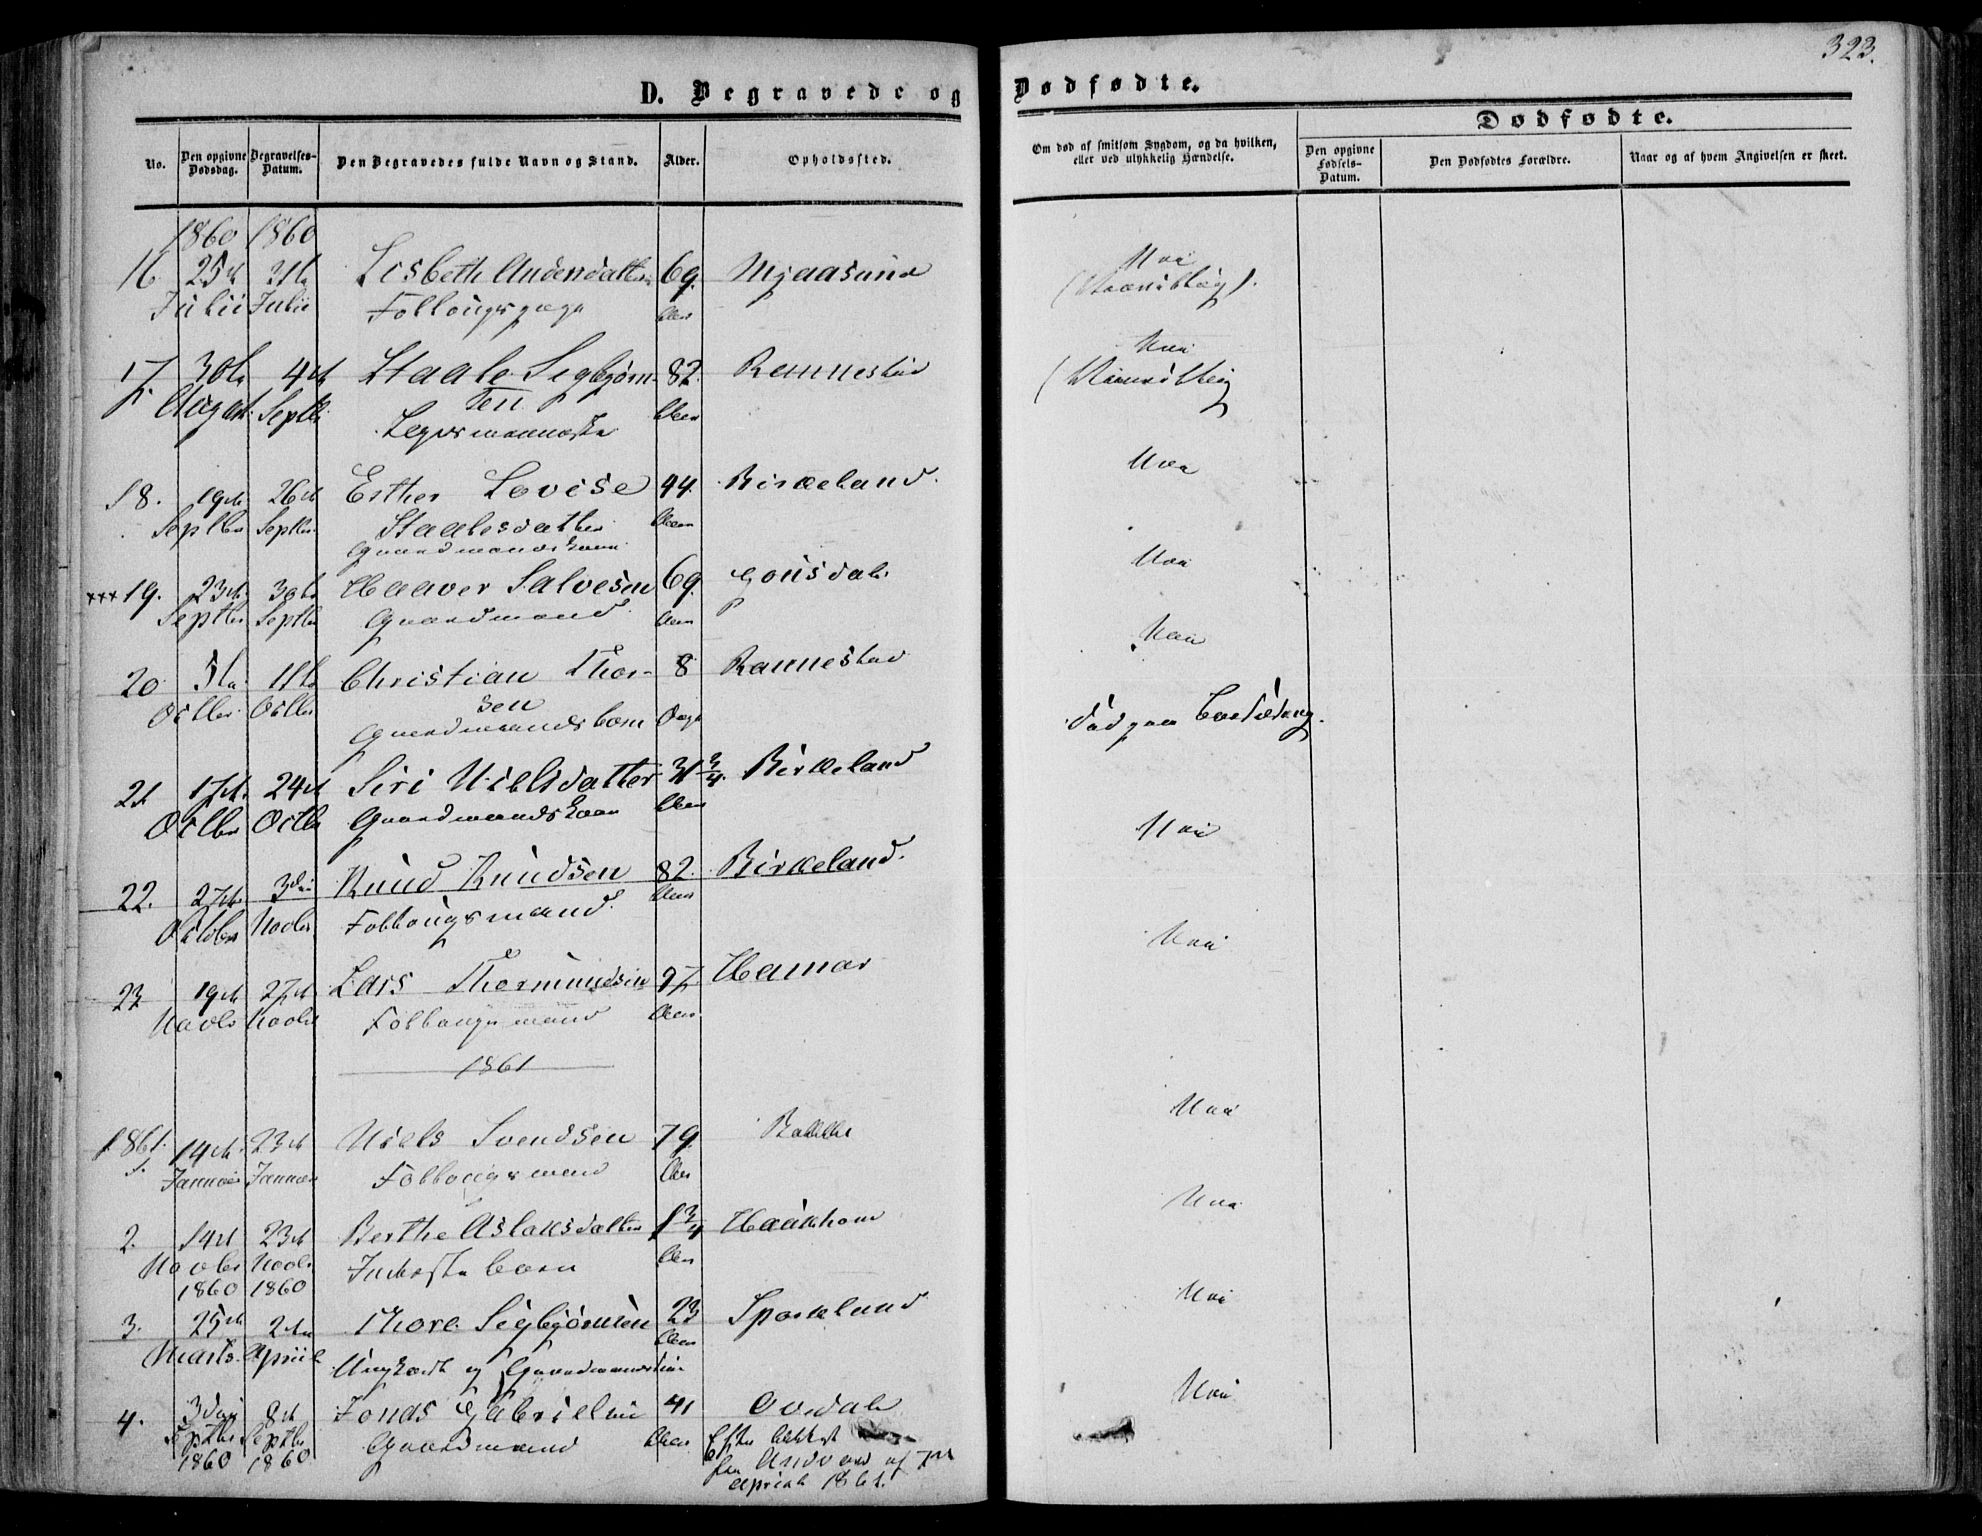 323.
D. Begravede og Dødfødte.
No. Den opgivne Dødsdag. Begravelses-Datum. Den Begravedes fulde Navn og Stand. Alder. Opholdssted.
Om død af smitsom Sygdom, og da hvilken, eller ved ulykkelig Hændelse.
Dødfødte.
Den opgivne Fødsels-Datum. Den Dødfødtes Forældre. Naar og af hvem Angivelsen er skeet.
1860 1860
16 25de 31te Lisbeth Andersdatter 69
Julii Julii
Nei
17. 30te 4de Staale Sigbjørn- 82. Rannestad
August Septbr sen Aar
Nei
18. 19de 26de Esther Lovise 44. Birkeland.
Septbr Septbr Staalesdatter Aar
Gaardmandskone
Nei
xxx 19. 23de 30te Haaver Salvesen 69.
Septbr Septbr Gaardmand Aar
Nei
20 5te 11te Christian Thor- 8 Rannestad
Octbr Octbr sen
Gaardmandsbarn Dage
Nei
21 17de 24de Siri Nielsdatter 31 3/4 Birkeland
Octbr Octbr Gaardmandskone Aar
død paa Barselseng.
22. 27de 3die Knud Knudsen 82. Birkeland.
Octbr Novbr Folkougsmand. Aar
Nei
23 19de 27de Lars Thormundsen Hamar
Novbr Novbr Folkougsmand Aar
Nei
1861
1861.
1. 14de 23de Niels Svendsen 79
Januar Januar Folkougsmand Aar
Nei
2. 14de 23de Berthe Aslaksdatter 1 3/4
Novbr Novbr Inderste barn Aar
1860 1860
Nei
3. 25de 2den Thore Sigbjørnsen 23
Marts April Ungkarl og Gaardmandssøn Aar
Nei
4. 3die 8de Jonas Gabrielsen 41
Septbr Septbr Gaardmand Aar
1860 1860
Nei
april 1861.